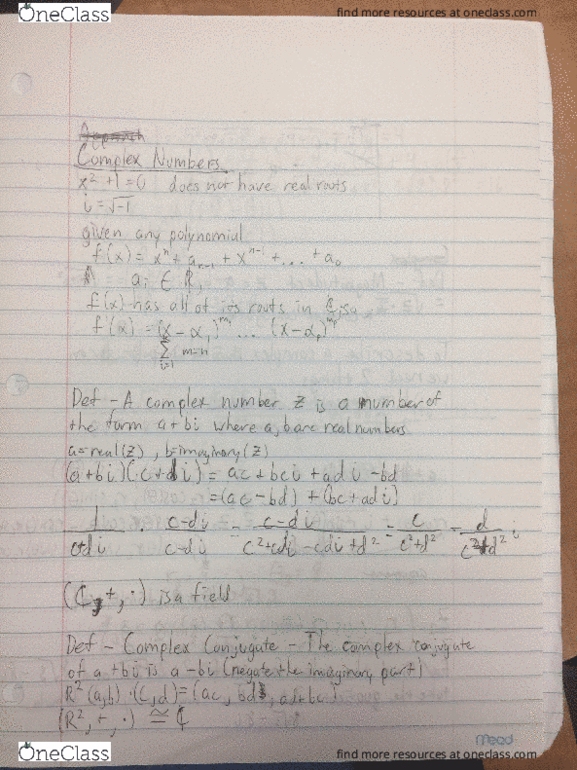 OneClass
find more resources at oneclass.com
Complex Numbers
x² + 1 = 0 does not have real roots
i = √-1
given any polynomial
f(x) = xⁿ + aₙ₋₁ + xⁿ⁻¹ + ... + a₀
aᵢ ∈ R,
f(x) has all of its roots in ℂ, isa
f(x) = (x - α₁)^m₁ ... (x - αᵣ)^mᵣ
Σ i=1 m=n
Def - A complex number z is a number of
the form a + bi where a, b are real numbers
a = real(z), b = imaginary(z)
(a + bi)(c + di) = ac + bci + adi - bd
= (ac - bd) + (bc + adi)
1/(c+di) · (c-di)/(c-di) = (c-di)/(c² + cdi - cdi + d²) = c/(c²+d²) - d/(c²+d²) i
(ℂ, +, ·) is a field
Def - Complex Conjugate - The complex conjugate
of a + bi is a - bi (negate the imaginary part)
R² (a,b) · (c,d) = (ac, bd, ad + bc)
(R², +, ·) ≅ ℂ
Mead
OneClass
find more resources at oneclass.com